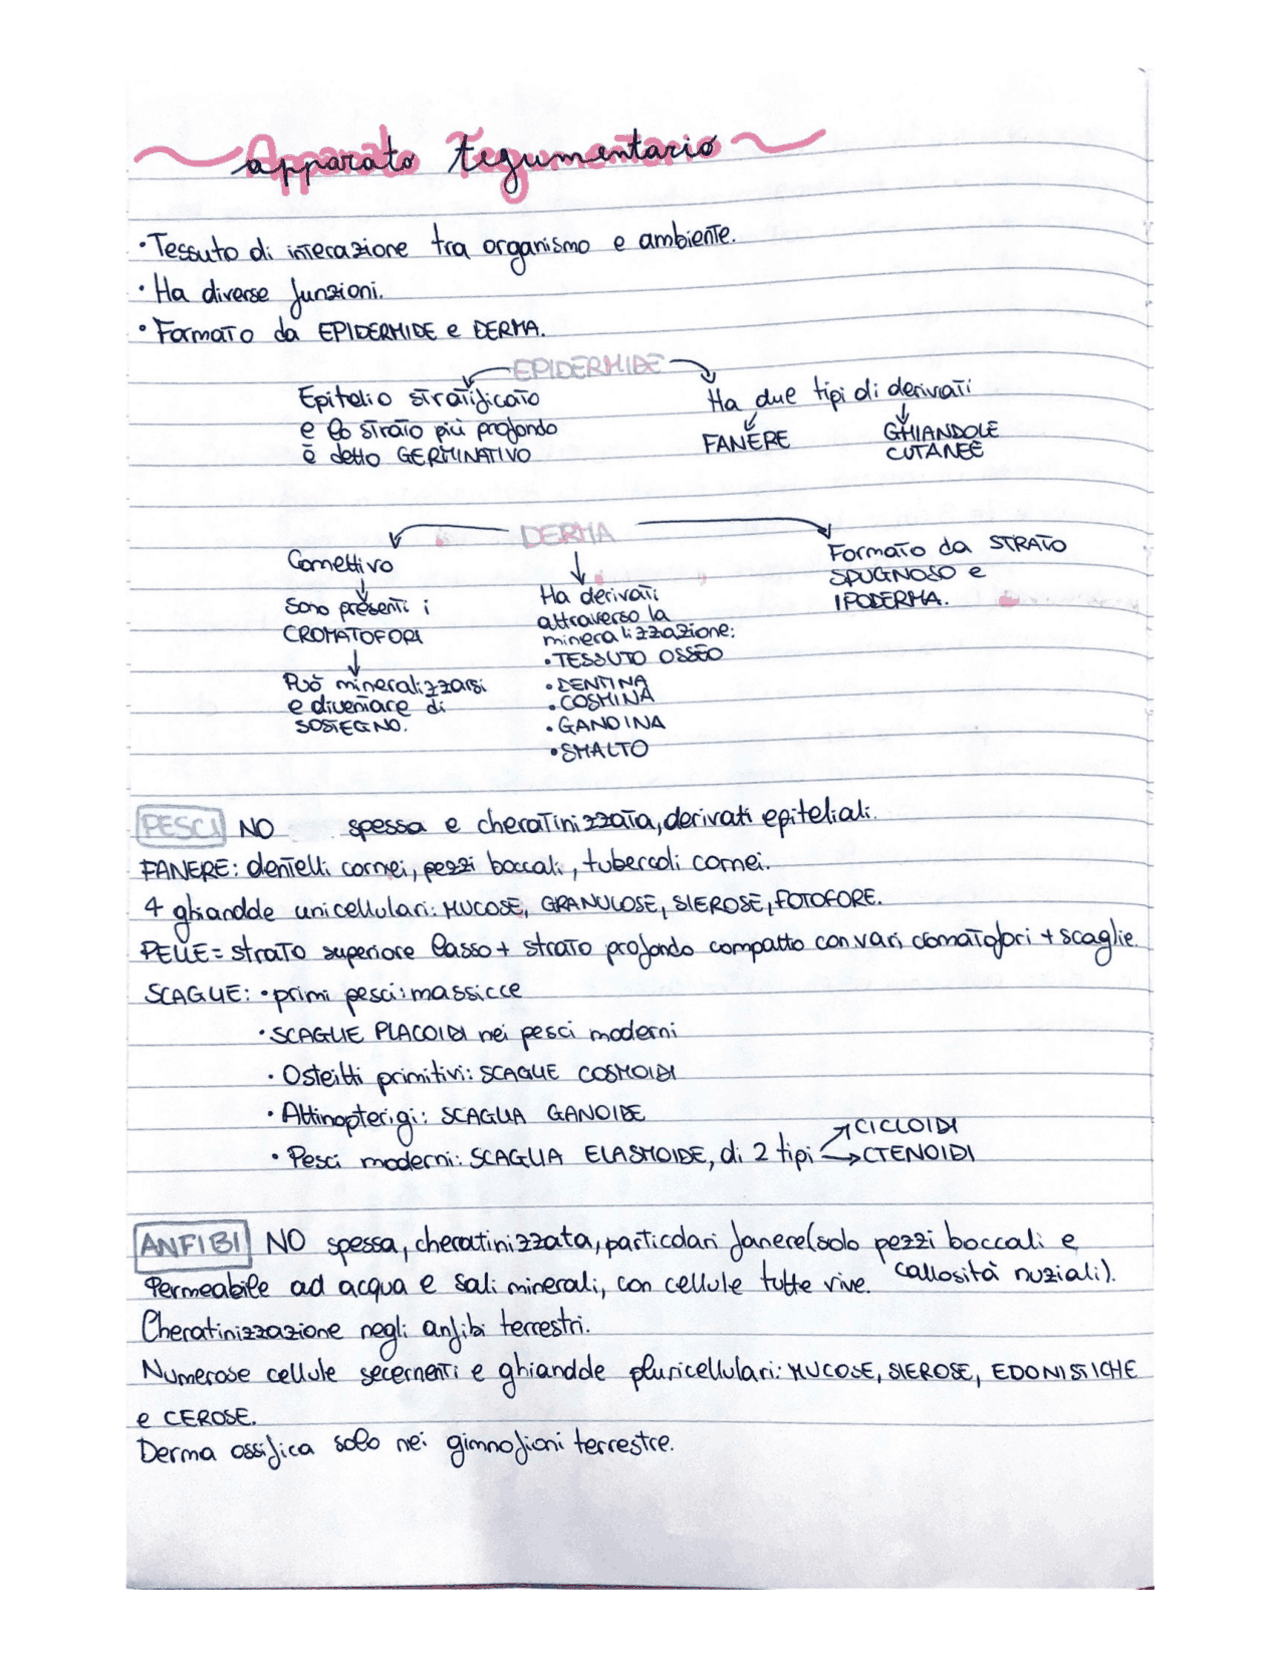 apparato tegumentario
• Tessuto di interazione tra organismo e ambiente.
• Ha diverse funzioni.
• Formato da EPIDERMIDE e DERMA.
EPIDERMIDE
Epitelio stratificato
e lo strato più profondo
è detto GERMINATIVO
Ha due tipi di derivati
FANERE
GHIANDOLE
CUTANEE
DERMA
Connettivo
Sono presenti i
CROMATOFORI
Può mineralizzarsi
e diventare di
SOSTEGNO.
Ha derivati
attraverso la
mineralizzazione:
• TESSUTO OSSEO
• DENTINA
• COSMINA
• GANOINA
• SMALTO
Formato da STRATO
SPUGNOSO e
IPODERMA.
PESCI NO spessa e cheratinizzata, derivati epiteliali.
FANERE: dentelli cornei, pezzi boccali, tubercoli cornei.
4 ghiandole unicellulari: MUCOSE, GRANULOSE, SIEROSE, FOTOFORE.
PELLE = strato superiore lasso + strato profondo compatto con vari cromatofori + scaglie.
SCAGLIE: • primi pesci: massicce
• SCAGLIE PLACOIDI nei pesci moderni
• Osteitti primitivi: SCAGLIE COSMOIDI
• Attinopterigi: SCAGLIA GANOIDE
• Pesci moderni: SCAGLIA ELASMOIDE, di 2 tipi
CICLOIDI
CTENOIDI
ANFIBI NO spessa, cheratinizzata, particolari fanere (solo pezzi boccali e
callosità nuziali).
Permeabile ad acqua e sali minerali, con cellule tutte vive.
Cheratinizzazione negli anfibi terrestri.
Numerose cellule secernenti e ghiandole pluricellulari: MUCOSE, SIEROSE, EDONISTICHE
e CEROSE.
Derma ossifica solo nei gimnofioni terrestre.